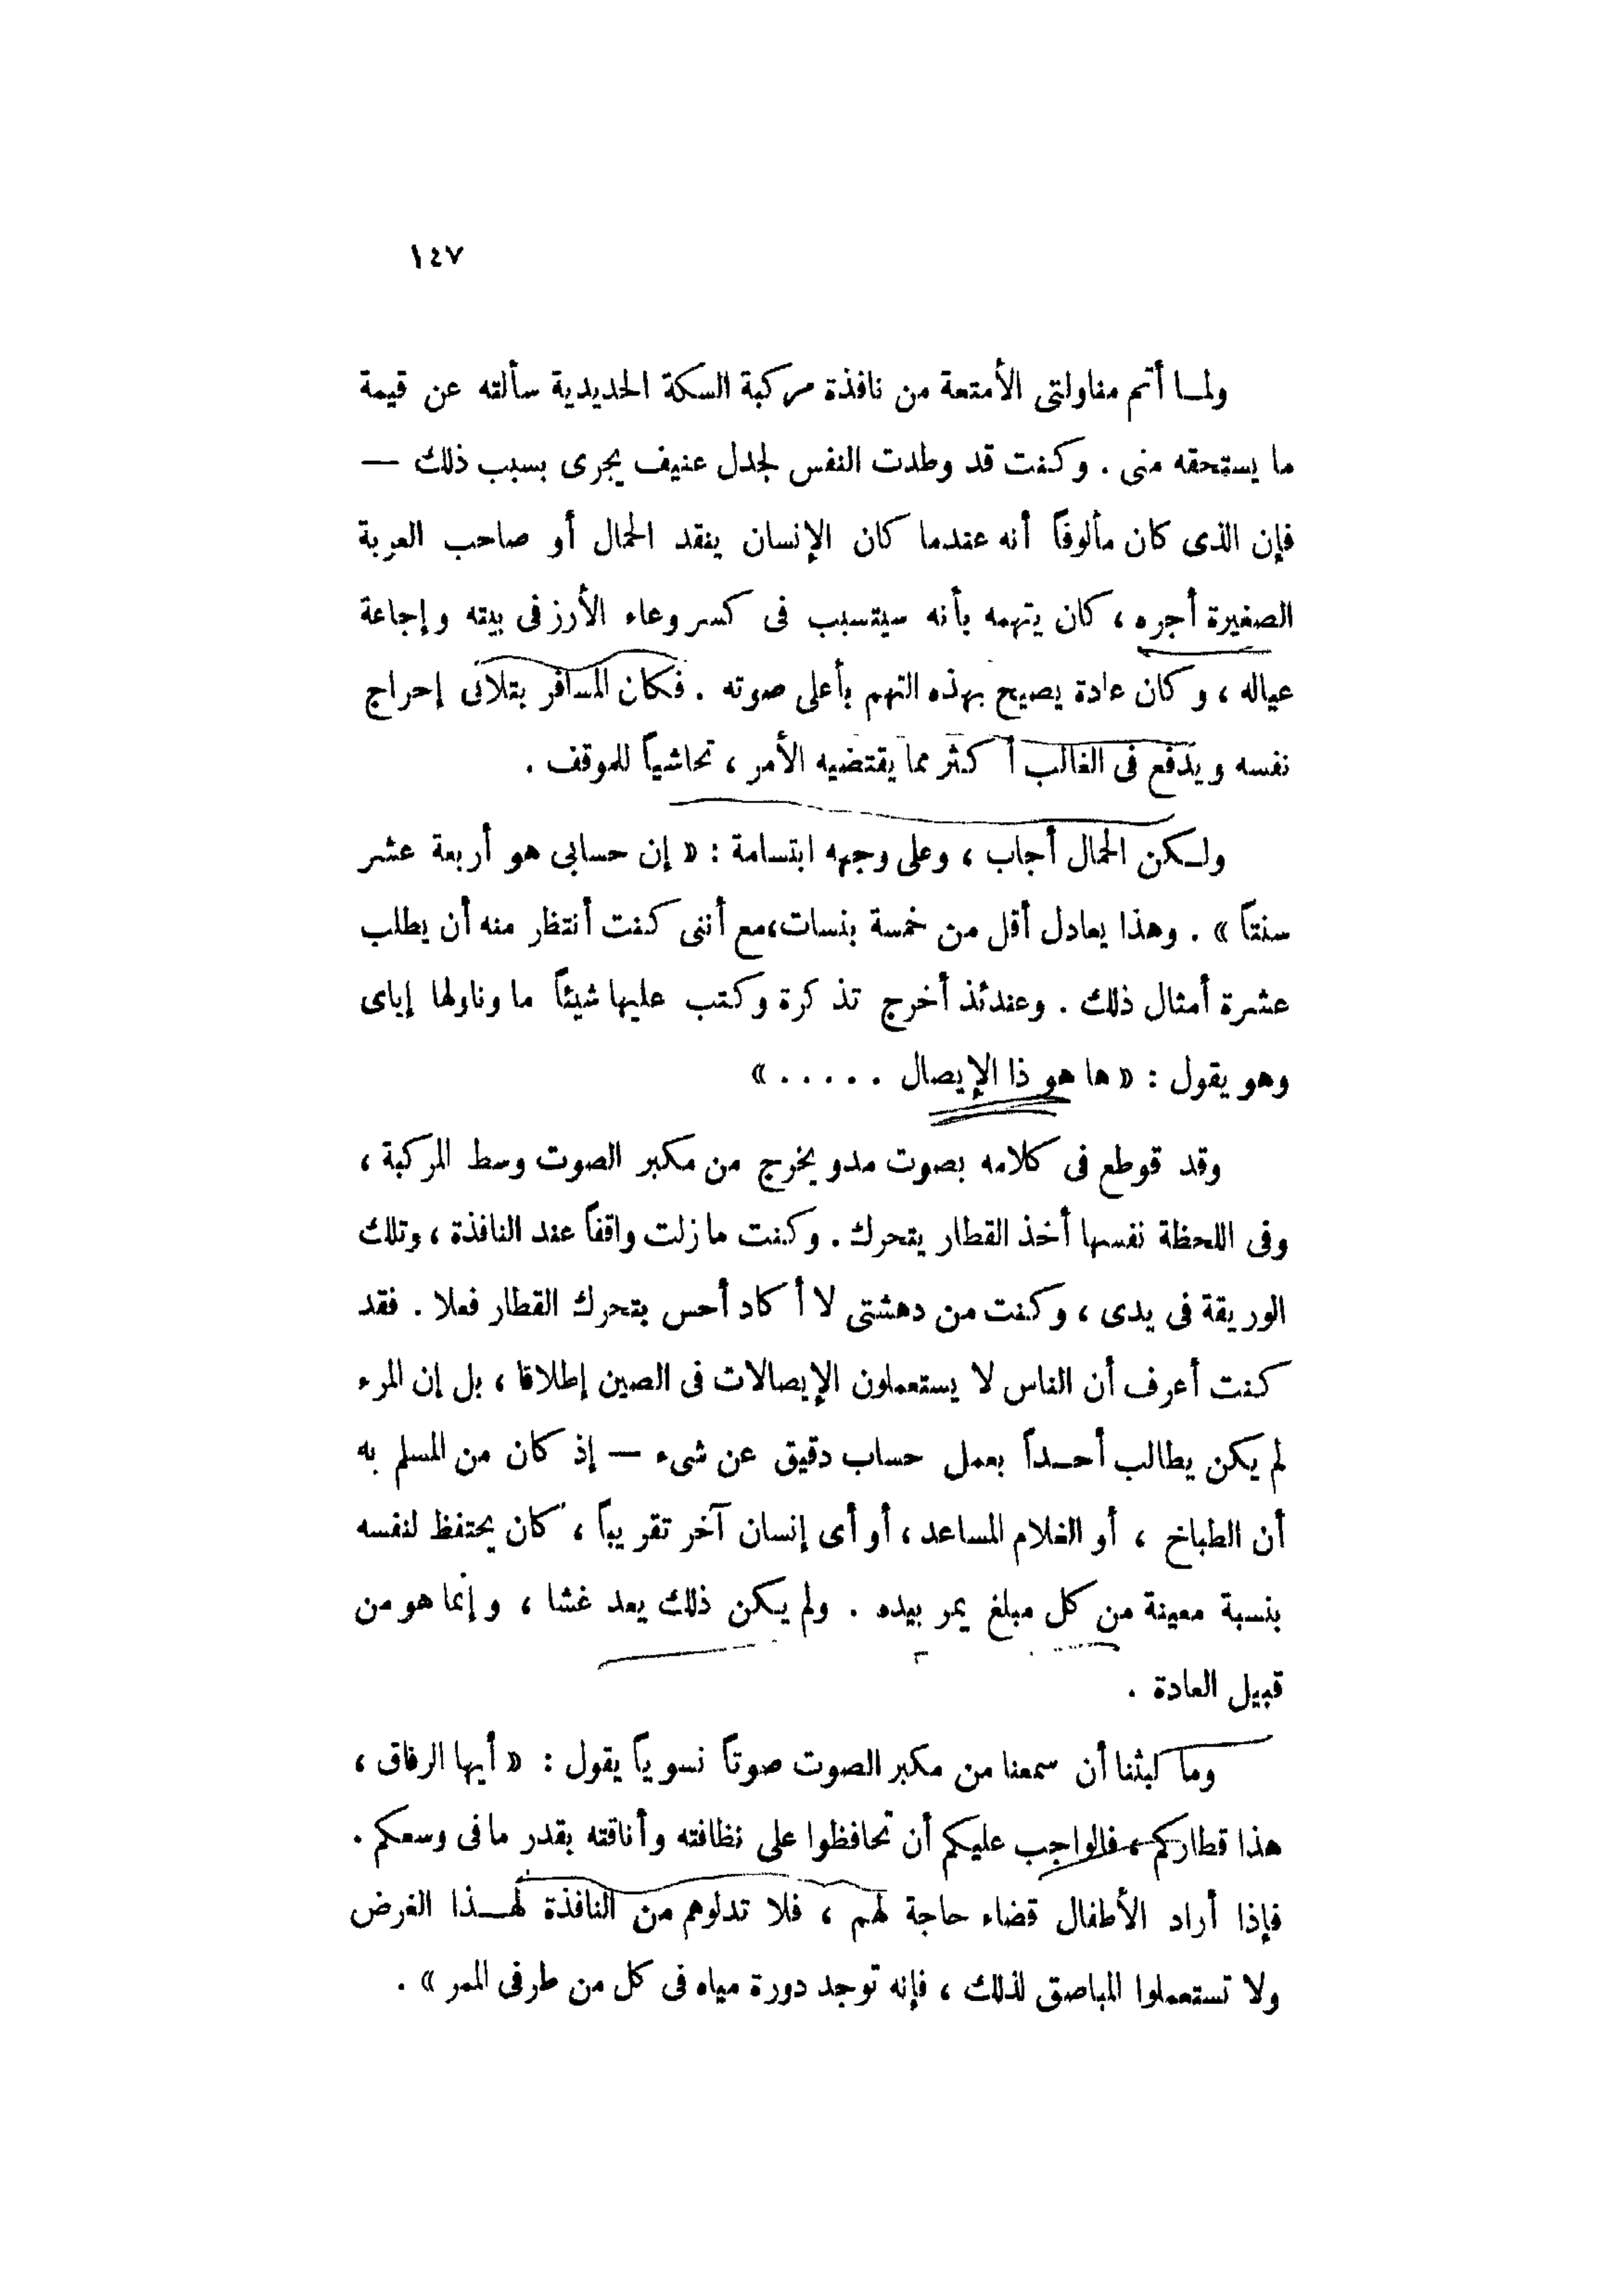 ١٤٧
ولما أتم مناولتى الأمتعة من نافذة مركبة السكة الحديدية سألته عن قيمة
ما يستحقه منى . وكنت قد وطدت النفس لجدل عنيف يجرى بسبب ذلك —
فإن الذى كان مألوفاً أنه عندما كان الإنسان ينقد الحمال أو صاحب العربة
الصغيرة أجره ، كان يتهمه بأنه سيتسبب فى كسر وعاء الأرز فى بيته وإجاعة
عياله ، وكان عادة يصيح بهذه التهم بأعلى صوته . فكان المسافر يتلافى إحراج
نفسه ويدفع فى الغالب أكثر مما يقتضيه الأمر ، تحاشياً للموقف .
ولكن الحمال أجاب ، وعلى وجهه ابتسامة : « إن حسابى هو أربعة عشر
سنتاً » . وهذا يعادل أقل من خمسة بنسات، مع أننى كنت أنتظر منه أن يطلب
عشرة أمثال ذلك . وعندئذ أخرج تذكرة وكتب عليها شيئاً ما وناولها إياى
وهو يقول : « ها هو ذا الإيصال . . . . . »
وقد قوطع فى كلامه بصوت مدو يخرج من مكبر الصوت وسط المركبة ،
وفى اللحظة نفسها أخذ القطار يتحرك . وكنت ما زلت واقفاً عند النافذة ، وتلك
الوريقة فى يدى ، وكنت من دهشتى لا أكاد أحس بتحرك القطار فعلا . فقد
كنت أعرف أن الناس لا يستعملون الإيصالات فى الصين إطلاقا ، بل إن المرء
لم يكن يطالب أحداً بعمل حساب دقيق عن شىء — إذ كان من المسلم به
أن الطباخ ، أو الغلام المساعد ، أو أى إنسان آخر تقريباً ، كان يحتفظ لنفسه
بنسبة معينة من كل مبلغ يمر بيده . ولم يكن ذلك يعد غشا ، وإنما هو من
قبيل العادة .
وما لبثنا أن سمعنا من مكبر الصوت صوتاً نسوياً يقول : « أيها الرفاق ،
هذا قطاركم ، فالواجب عليكم أن تحافظوا على نظافته وأناقته بقدر ما فى وسعكم .
فإذا أراد الأطفال قضاء حاجة لهم ، فلا تدلوهم من النافذة لهذا الغرض
ولا تستعملوا المباصق لذلك ، فإنه توجد دورة مياه فى كل من طرفى الممر » .